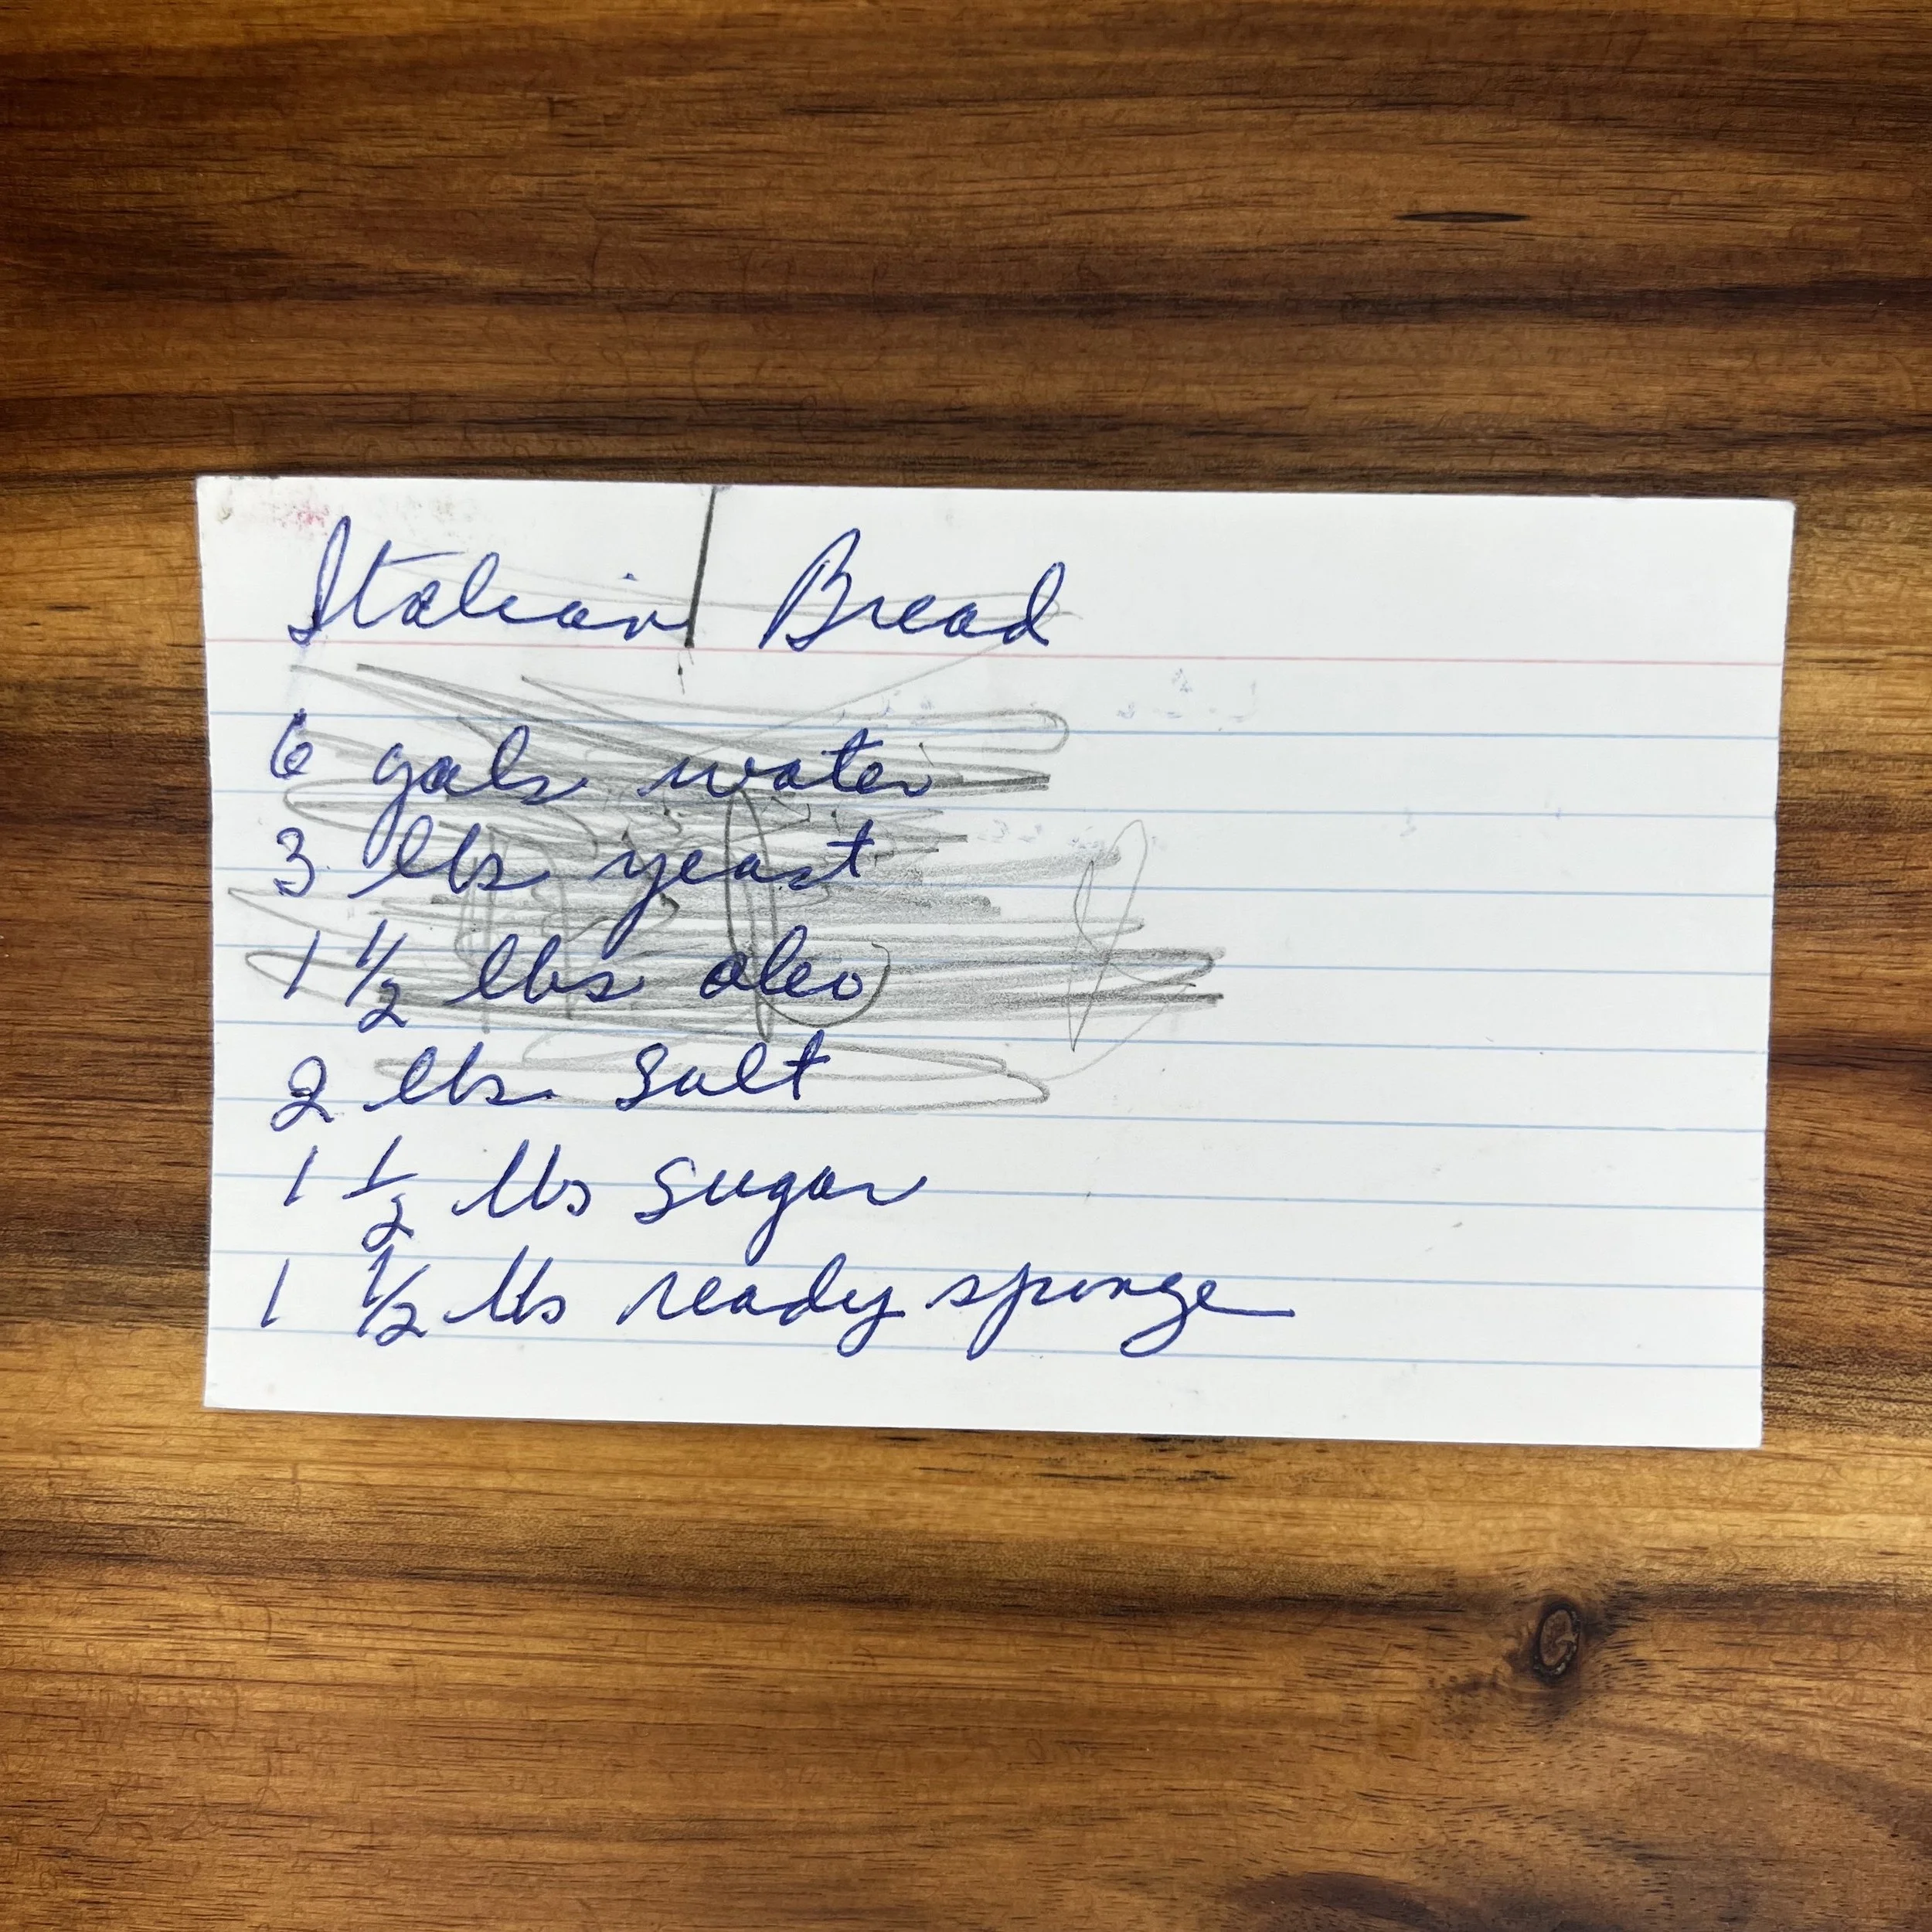 Italian Bread
6 gals water
3 lbs yeast
1 1/2 lbs oleo
2 lbs. Salt
1 1/2 lbs sugar
1 1/2 lbs ready sponge